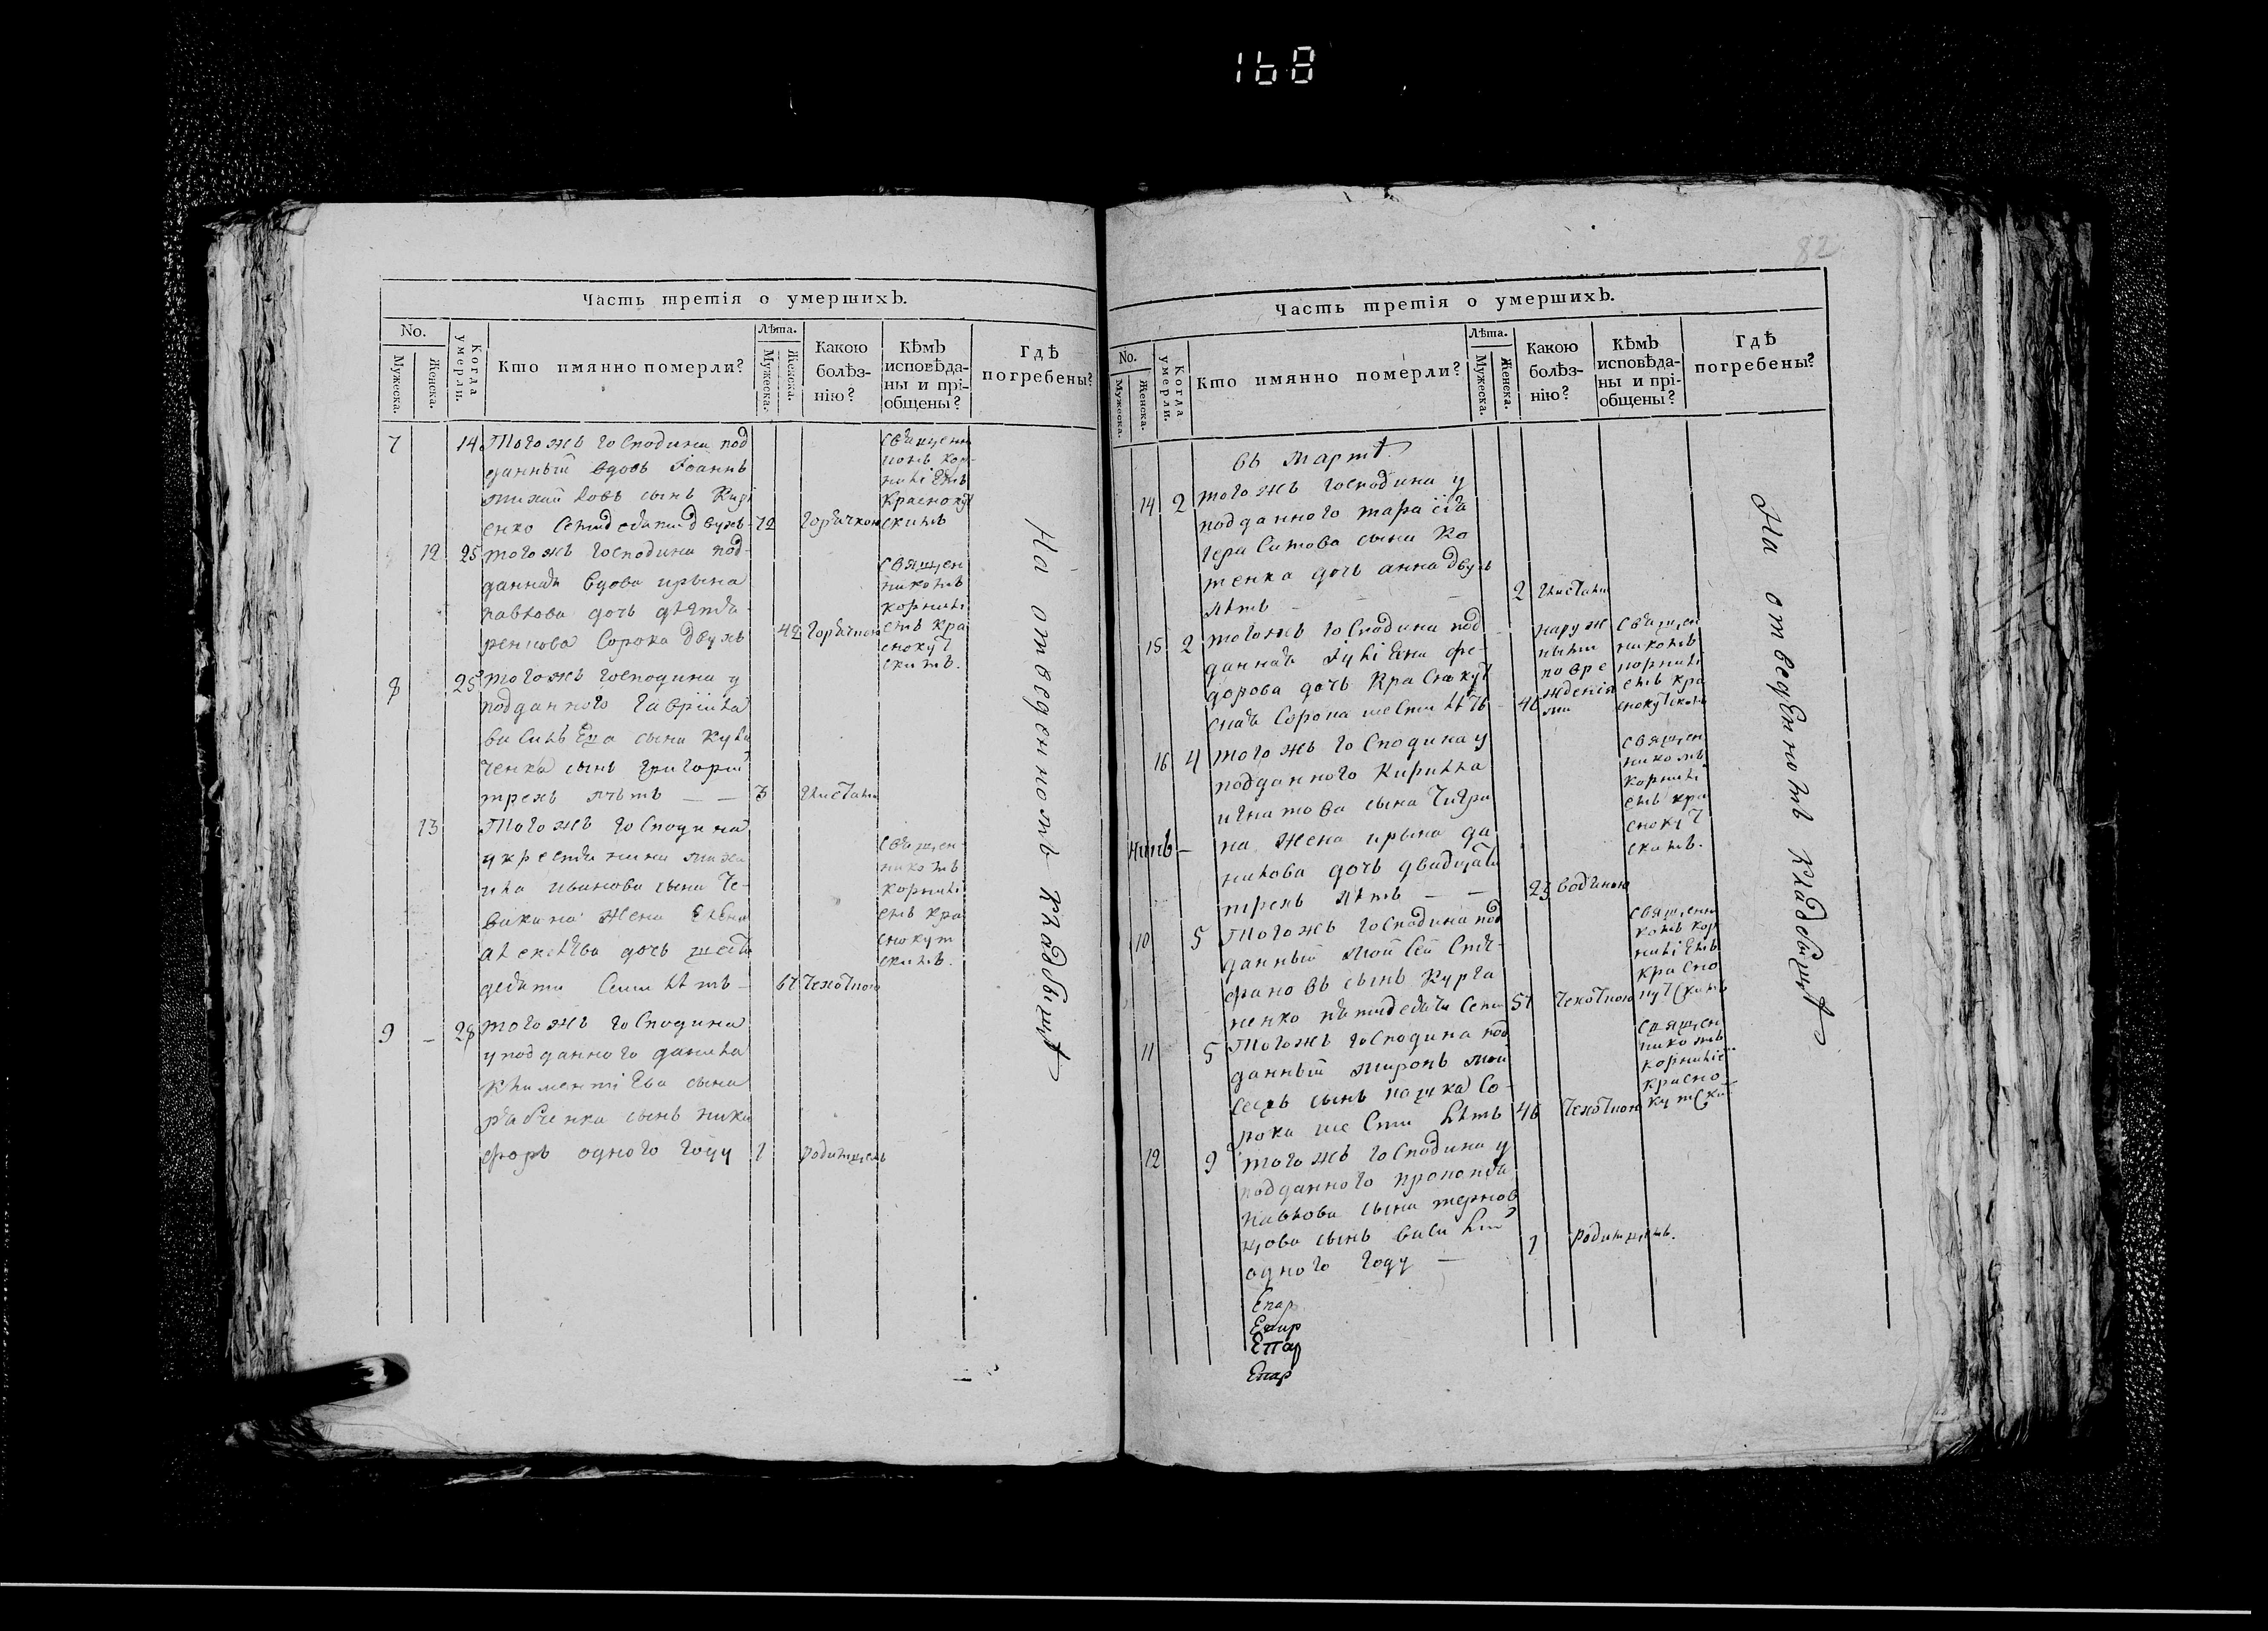 168
Часть третія о умершихъ.
No.
Мужеска.
Женска.
Когда умерли.
Кто имянно померли?
Лѣта.
Мужеска.
Женска.
Какою болѣз-
нію?
Кѣмъ
исповѣда-
ны и прі-
общены?
Гдѣ
погребены?
7 14 Тогожъ господина под
данный вдовъ Іоаннъ
михайловъ сынъ
енко семидесяти двухъ 72 горячкою
священ
корниліемъ
краснокут
скимъ
12 25 тогожъ господина под-
данная вдова ирына
павлова дочь
ренкова сорока двухъ 42 горячкою
священ
никомъ
корнилі
емъ кра
снокут
скимъ.
8 25 тогожъ господина у
подданного гавріила
васильева сына
ченка сынъ григорій
трехъ лѣтъ — — 3 глистами
13 Тогожъ господина
у крестянина миха
ила иванова сына Че-
жена Елена
алексѣева дочь шести
десяти семи лѣтъ 67 чехоткою
священ
никомъ
корнилі
емъ кра
снокут
скимъ.
9 — 28 тогожъ господина
у подданного данила
климентіева сына
рабченка сынъ ники
форъ одного году 1 родимцемъ
На отведенномъ кладбищѣ
82
Часть третія о умершихъ.
No.
Мужеска.
Женска.
Когда умерли.
Кто имянно померли?
Лѣта.
Мужеска.
Женска.
Какою
болѣз-
нію?
Кѣмъ
исповѣда-
ны и прі-
общены?
Гдѣ
погребены?
въ мартѣ
14 2 тогожъ господина у
подданного тарасія
герасимова сына Ко
тенка дочь анна двухъ
лѣтъ — — 2 глистами
15 2 тогожъ господина под
данная гликіена фе-
дорова дочь Краснокут
ская сорока шести лѣтъ 46
наруж
ными
повре
жденія
ми
священ
никомъ
корнилі
емъ кра
снокутскимъ
16 4 тогожъ господина у
подданного Кирилла
игнатова сына Чигри
на жена ирына да
нилова дочь двадцати
трехъ лѣтъ — — 23 водяною
священ
никомъ
корнилі
емъ кра
снокут
скимъ.
10 5 Тогожъ господина под
данный мойсей сте-
фановъ сынъ Курга
ненко пятидесяти семи 57 чехоткою
священни
комъ кор
ниліемъ
красно
кутскимъ
11 5 Тогожъ господина под
данный миронъ мой
сеевъ сынъ со-
рока шести лѣтъ 46 чехоткою
священ
никомъ
корниліе
красно
кутски
12 9 тогожъ господина у
подданного прокопія
павлова сына тернов
цова сынъ василій
одного году — 1 родимцемъ.
Епар
Епар
Епар
Епар
На отведенномъ кладбищѣ